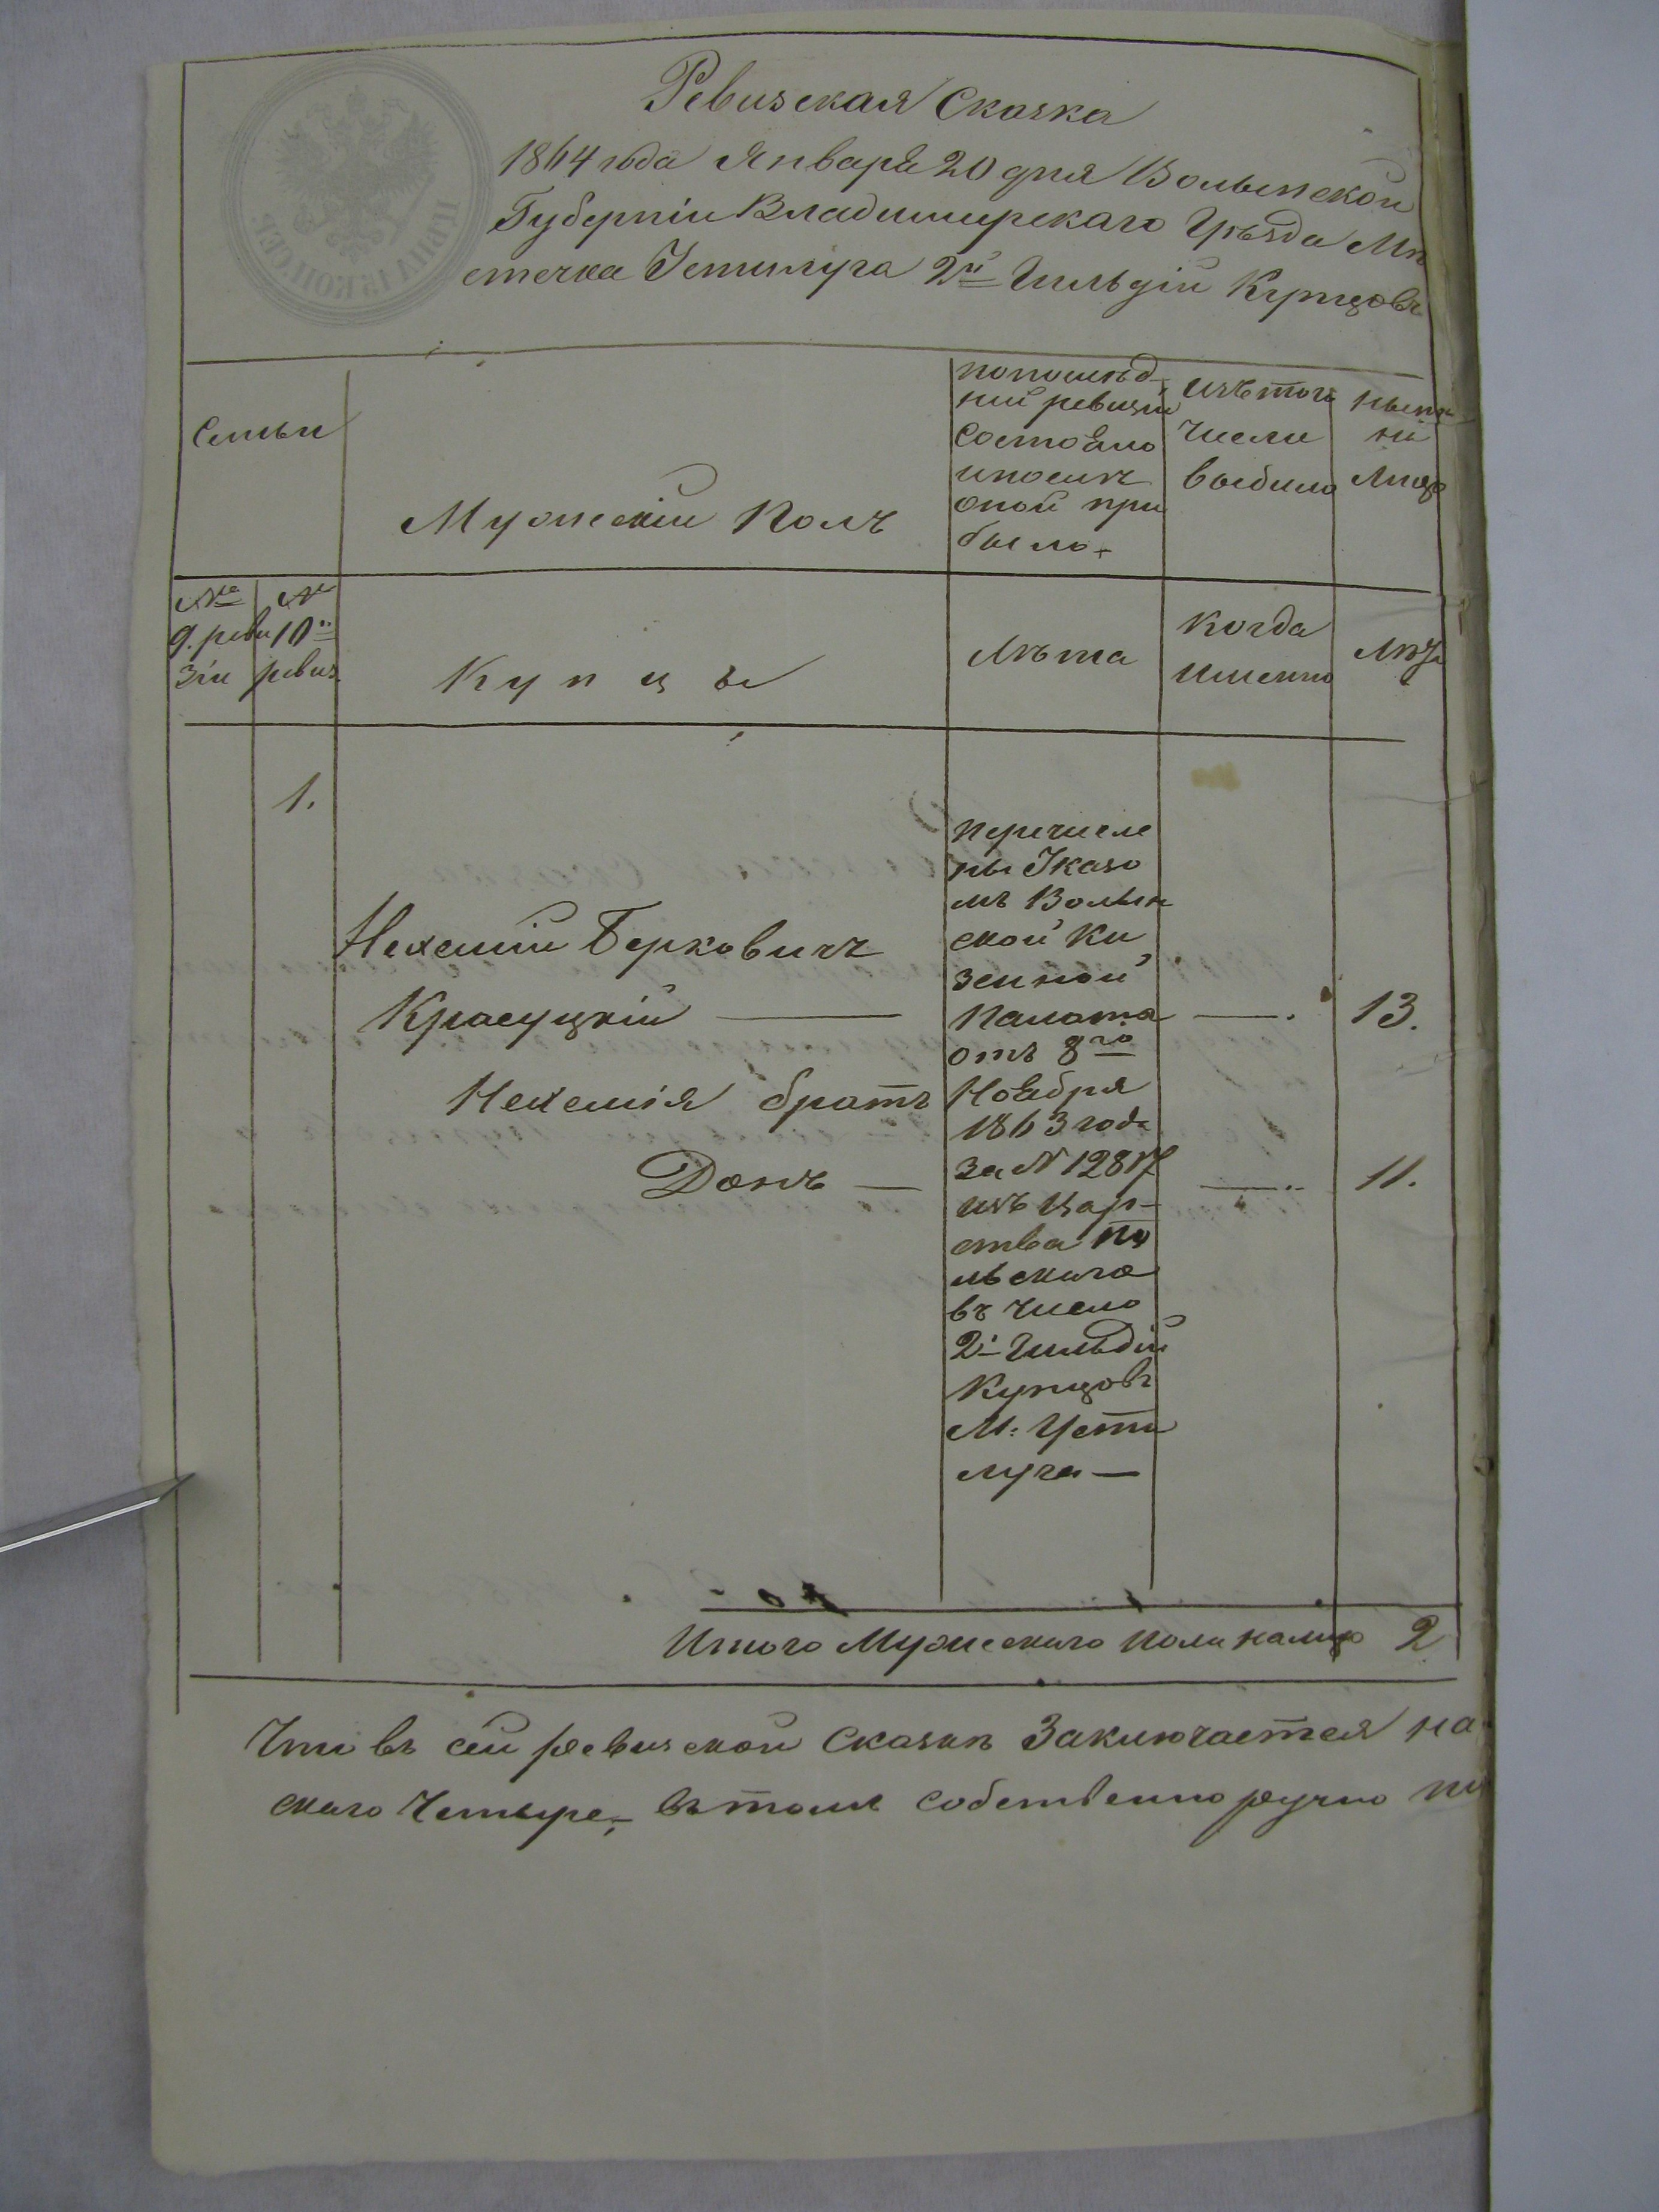 Ревизская Сказка
1864 года Января 20 дня Волынской
Губерніи Владимирскаго Уѣзда Мѣ
стечка Устилуга 2й Гильдіи Купцовъ
Семьи
Мужескій Полъ
по послѣд-
ней ревизіи
состояло
и послѣ
оной при
было
изъ того
числа
выбыло
нынѣ
на
лицо
№ 9. реви
зіи
№ 10й
ревиз.
Купцы
Лѣта
когда
именно
Лѣта
1.
Нехемій Берковичъ
Красуцкій — — 13.
Нехемія братъ
Данъ — — 11.
перечисле
ны Указо
мъ Волын
ской Ка
зенной
Палата
отъ 8го
Ноября
1863 года
за № 12817
изъ Цар-
ства По
льскаго
въ число
2й Гильдіи
Купцовъ
М: Усти
луга —
Итого Мужескаго пола налицо 2
Что въ сей ревизской сказкѣ Заключается на
скаго Четыре, въ томъ собственноручно по